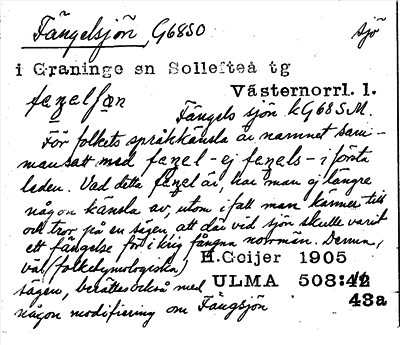 Fängelsjön, G6850 sjö
i Graninge sn Sollefteå tg
Västernorrl. l.
Fängels sjön kG68S.M.
För folkets språkkänsla är namnet sam-
mansatt med feŋel - ej feŋels - i första
leden. Vad detta feŋel är, har man ej längre
någon känsla av, utom i fall man känner till
och tror på en sägen, att där vid sjön skulle varit
ett fängelse för i krig fångna norrmän. Denna,
väl (folketymologiska) H.Geijer 1905
sägen, berättes också med ULMA 508:42
någon modifiering om Fångsjön 43a